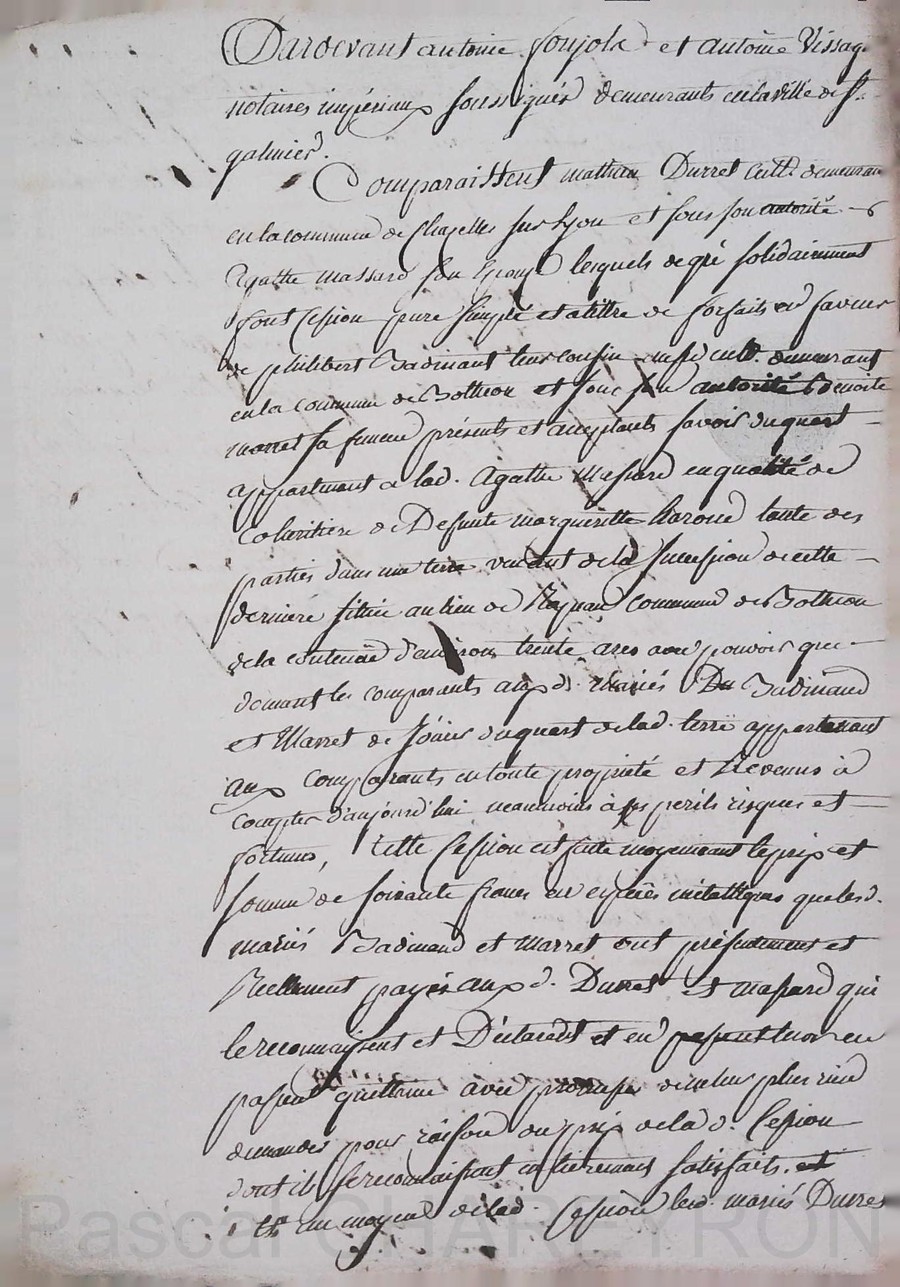 Pardevant antoine foujols et antoine Vissag
notaires impériaux soussignés demeurants en la ville de St.
galmier.
Comparaissent mathieu Durret cult. demeuran
en la commune de Chazelles sur Lyon et sous son autorité
Agathe massard son Epouse lesquels de gré solidairement
font Cession pure simple et a tittre de forfaits en faveur
de philibert Badinant leur cousin cult. demeurant
en la commune de Bothéon et sous son autorité Benoite
marret sa femme présents et acceptants savoir du quart
appartenant a lad. Agathe Massard en qualité de
Coheritiere de Defunte margueritte toute des
parties dans une terre venant de la succession de cette
derniere située au lieu de commune de Bothéon
de la contenue d'environ trente ares avec pouvoir que
donnent les comparants aux d. mariés Badinand
et Marret de Jouir du quart de lad. terre appartenant
aux comparants en toute propriété et Revenus à
compter d'aujourd'hui neanmoins à ses perils risques et
fortunes, cette Cession est faite moyennant le prix et
somme de soixante francs en espèces métalliques que les d.
mariés Badinand et marret ont présentement et
Réellement payés aux d. Durret et massard qui
le reconnaissent et Déclarent et en
passent quittance avec promesse de ne leur plus rien
demander pour raison du prix de la d. Cession
dont ils se reconnaissent entierement satisfaits. et
au moyen de lad. Cession les d. mariés Durret
Pascal CHAREYRON